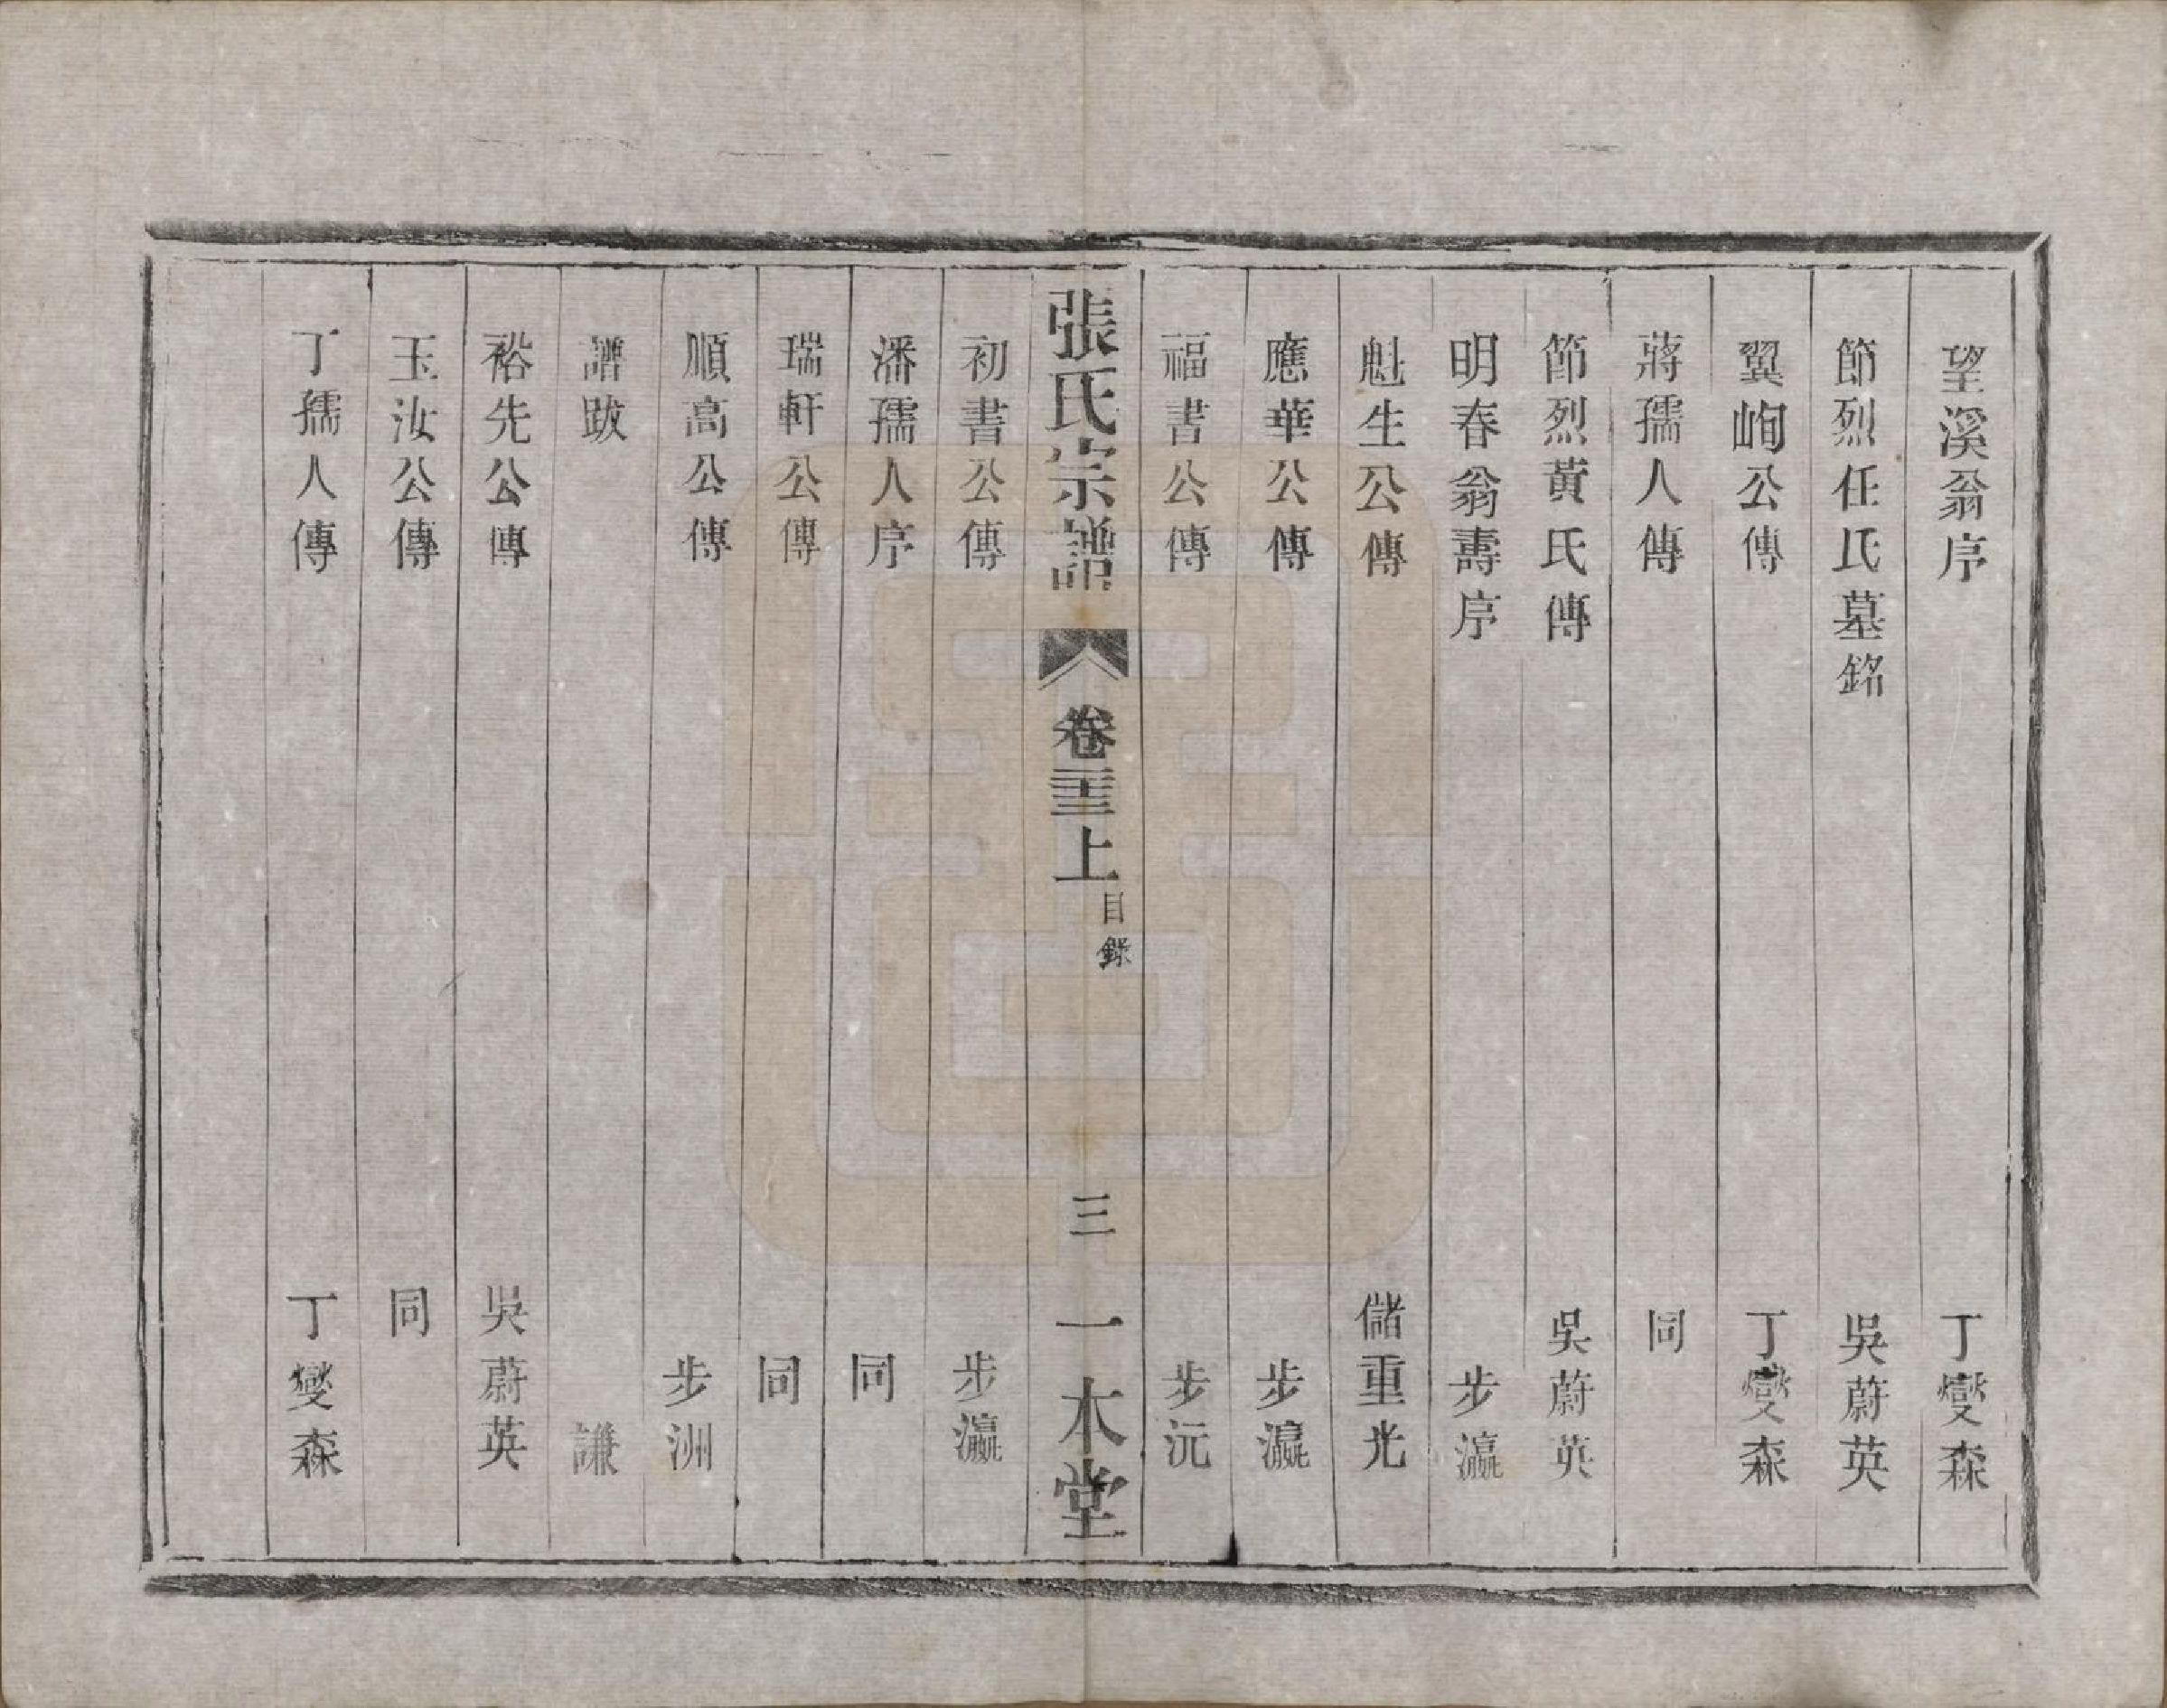 望溪翁序 丁燮森
節烈任氏墓銘 吳蔚英
翼峋公傳 丁燮森
蔣孺人傳 同
節烈黃氏傳 吳蔚英
明春翁壽序 步瀛
魁生公傳 儲重光
應華公傳 步瀛
福書公傳 步沅
張氏宗譜 卷二十三上 目錄 三 一本堂
初書公傳 步瀛
潘孺人序 同
瑞軒公傳 同
順高公傳 步洲
譜跋 謙
裕先公傳 吳蔚英
玉汝公傳 同
丁孺人傳 丁燮森